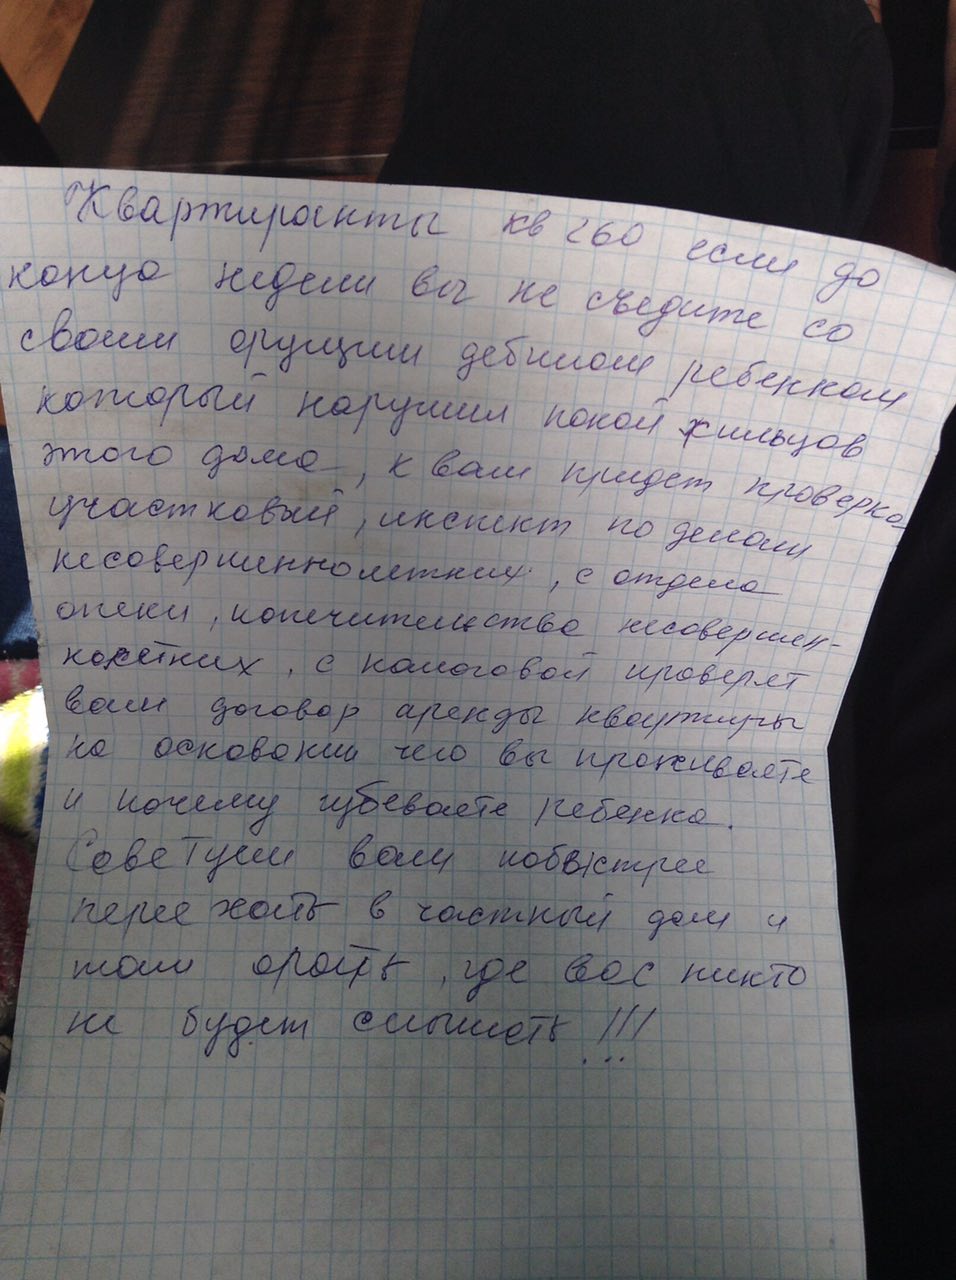 Квартиранты кв 260 если до
конца недели вы не съедите со
своим орущим дебилом ребенком
который нарушил покой жильцов
этого дома, к вам придет проверка
участковый, инспект по делам
несовершеннолетних, с отдела
опеки, попечительства несовершен-
нолетних, с налоговой проверят
вам договор аренды квартиры
на основании чего вы проживаете
и почему губеваете ребенка.
Советуем вам побыстрее
переехать в частный дом и
там орать, где вас никто
не будет слышать!!!